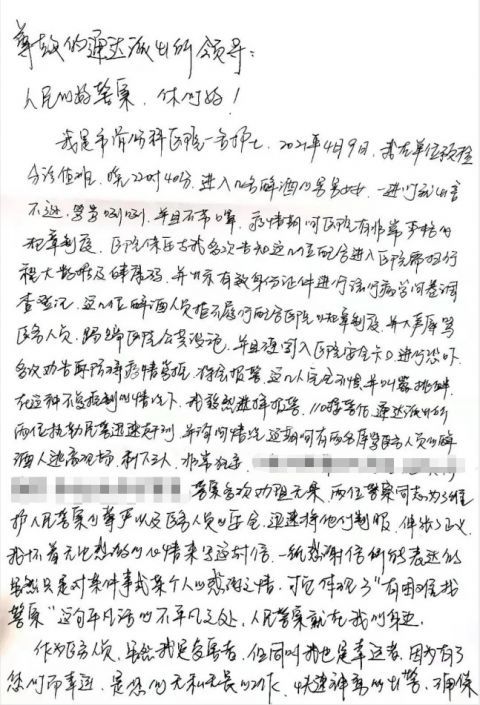 尊敬的通达派出所领导:
人民的好警察,你们好!
我是市骨伤科医院一名护士,2021年4月9日,我在单位预检
分诊值班,晚22时40分,进入几名醉酒的男男女女,一进门就出言
不逊,骂骂咧咧,并且不带口罩,疫情期间医院有非常严格的
规章制度,医院保卫与我多次告知这几位配合进入医院需扫行
程大数据及健康码,并出示有效身份证件进行流行病学问卷调
查登记,这几位醉酒人员拒不履行配合医院的规章制度,并大声辱骂
医务人员,踢踹医院公共设施,并且硬闯入医院安全卡口进行恐吓,
多次劝告再防碍疫情管控,将会报警,这几人完全不惧,并叫嚣挑衅,
在这种不受控制的情况下,我毅然选择报警,110接警后,通达派出所
两位执勤民警迅速赶到,并询问情况,这期间有两名辱骂医务人员的醉
酒人逃离现场,剩下三人,非常狂妄,
警察多次劝阻无果,两位警察同志为了维
护人民警察的尊严以及医务人员的安全,迅速将他们制服,伸张了正义,
我怀着无比感激的心情来写这封信,一纸感谢信所能表达的
虽然只是对某件事或某个人的感谢之情,可它体现了"有困难找
警察"这句平凡话的不平凡之处,人民警察就在我们身边。
作为医务人员,虽然我是受害者,但同时我也是幸运者,因为有了
您们而幸运,是您们无私无畏的工作,快速神勇的出警,确保